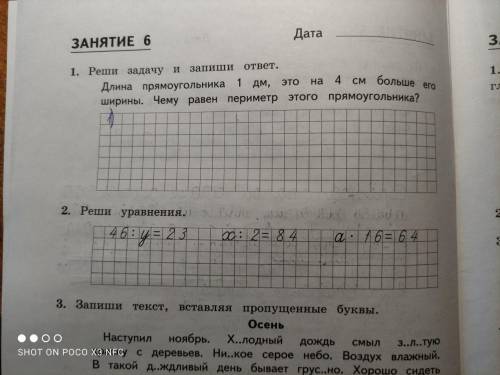 ЗАНЯТИЕ 6
Дата
З
1. Реши задачу и запиши ответ.
Длина прямоугольника 1 дм, это на 4 см больше его
ширины. Чему равен периметр этого прямоугольника?
1)
2. Реши уравнения.
46 : y = 23 x : 2 = 84 a · 16 = 64
3. Запиши текст, вставляя пропущенные буквы.
Осень
Наступил ноябрь. Х..лодный дождь смыл з..л..тую
у с деревьев. Ни..кое серое небо. Воздух влажный.
В такой д..ждливый день бывает грус..но. Хорошо сидеть
SHOT ON POCO X3 NFC